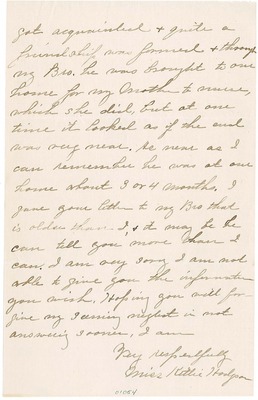 got acquainted & quite a
friendship was formed & through
my Bro. he was brought to our
home for my Mother to nurse,
which she did, but at one
time it looked as if the end
was very near. As near as I
can remember he was at our
home about 3 or 4 months. I
gave your letter to my Bro that
is older than I, & it may be he
can tell you more than I
can. I am very sorry I am not
able to give you the information
you wish. Hoping you will for
give my seeming neglect in not
answering sooner, I am
Very respectfully
Miss Kittie
01054